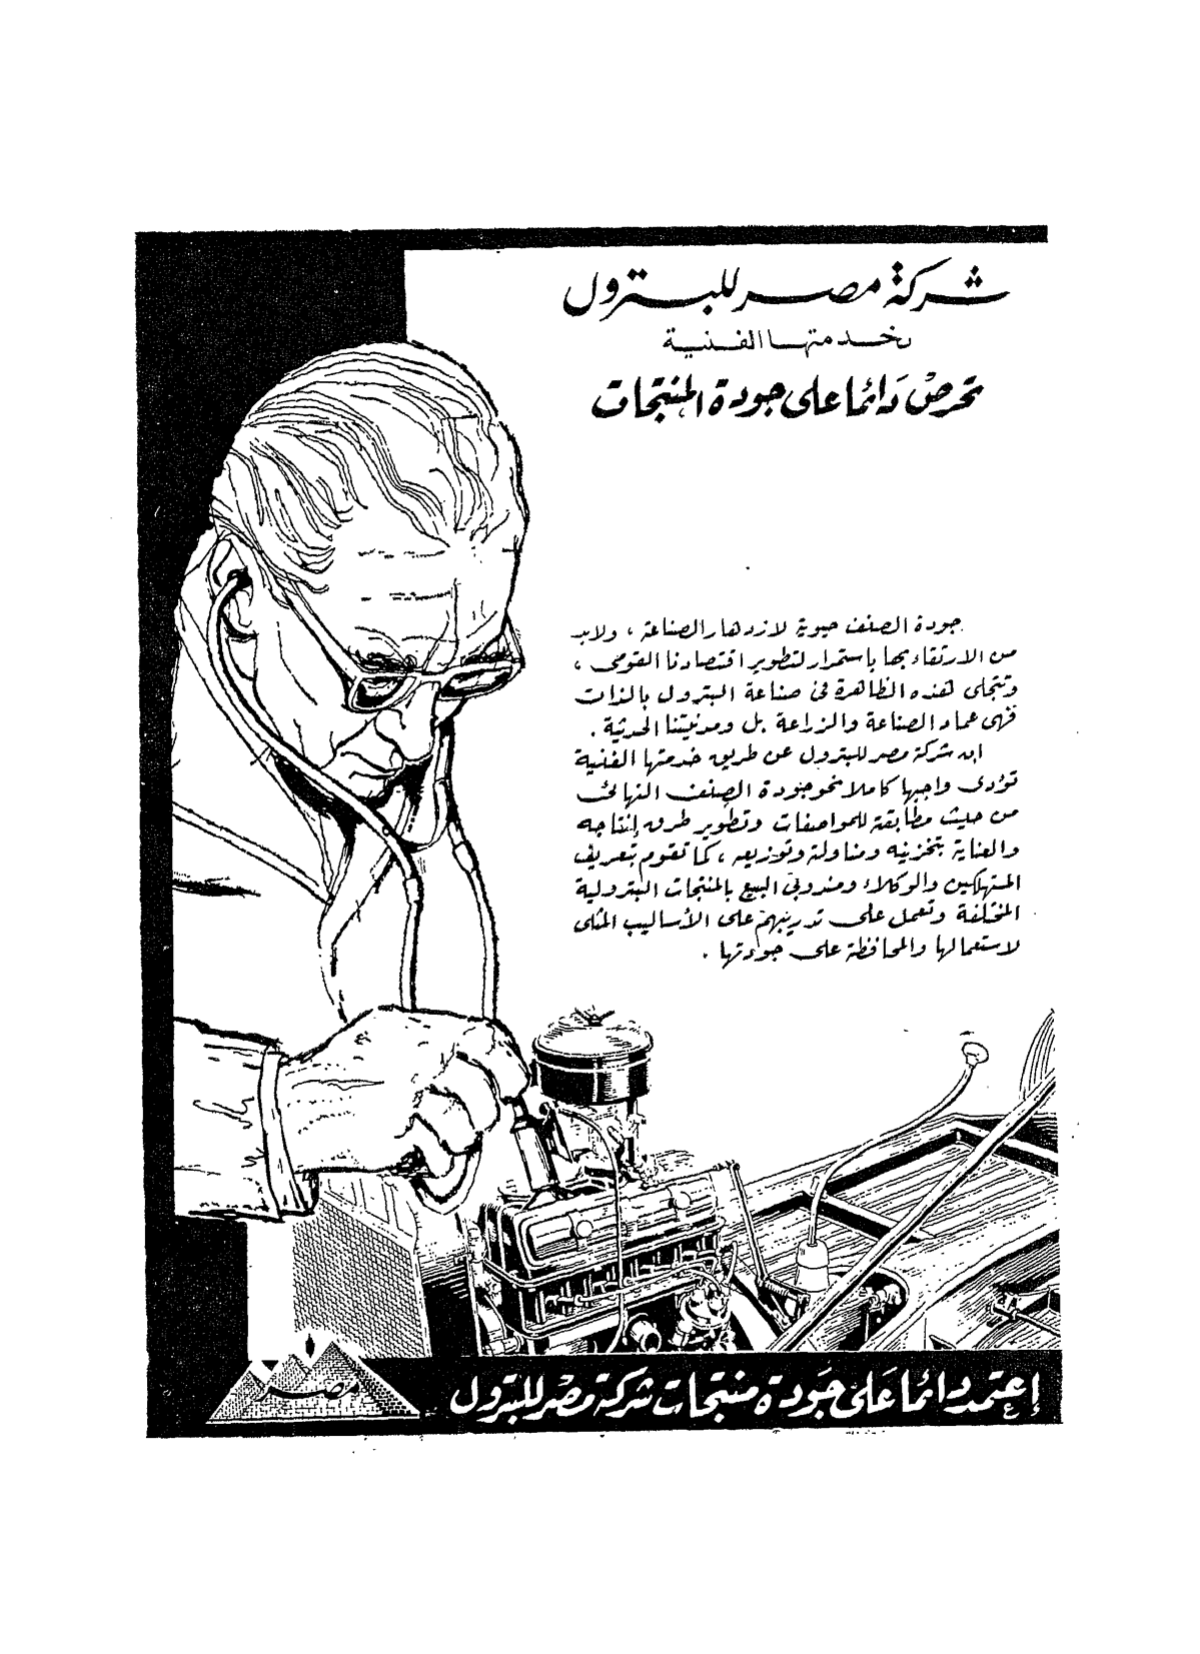 شركة مصر للبترول
بخدمتها الفنية
تحرصْ دَائما على جودة المنتجات
جودة الصنف حيوية لازدهار الصناعة ، ولابد
من الارتقاء بها باستمرار لتطوير اقتصادنا القومى ،
وتتجلى هذه الظاهرة فى صناعة البترول بالذات
فهى عماد الصناعة والزراعة بل ومدنيتنا الحديثة .
ان شركة مصر للبترول عن طريق خدمتها الفنية
تؤدى واجبها كاملا نحو جودة الصنف النهائى
من حيث مطابقة للمواصفات وتطوير طرق إنتاجه
والعناية بتخزينه ومناولة وتوزيعه ، كما تقوم بتعريف
المستهلكين والوكلاء ومندوبى البيع بالمنتجات البترولية
المختلفة وتعمل على تدريبهم على الأساليب المثلى
لاستعمالها والمحافظة على جودتها .
إعتمد دائما عَلى جَودة منتجات شركة مصْر للبترول
مصر